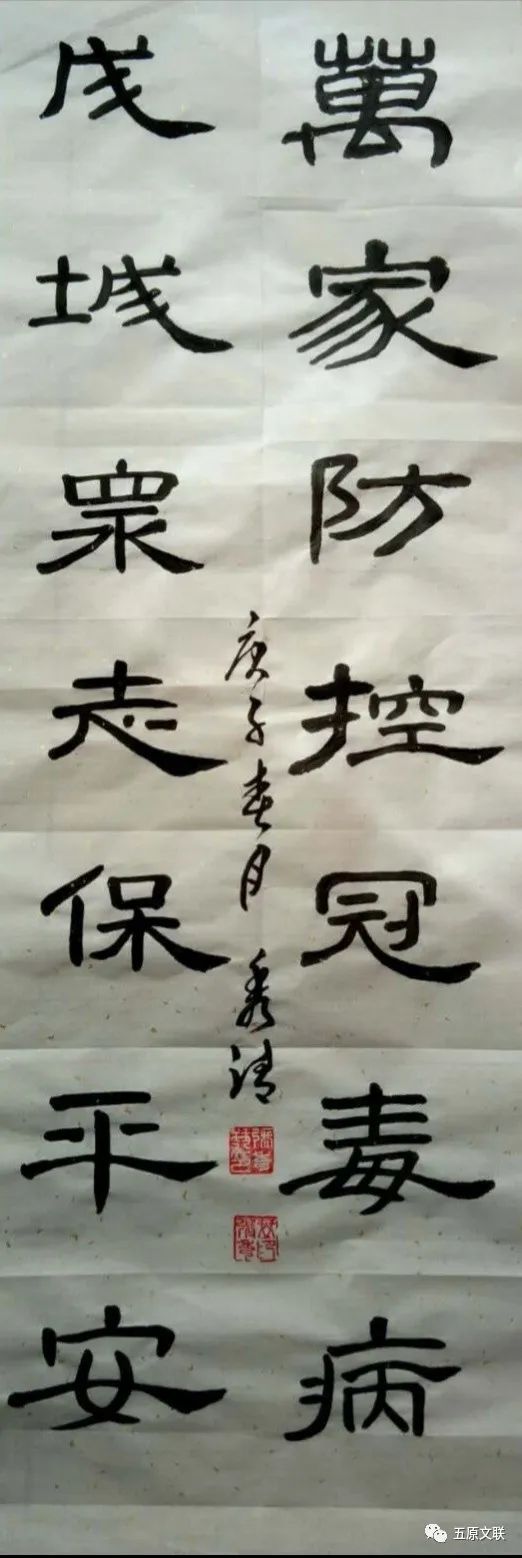 萬家防控冠毒病
成城眾志保平安
庚子春月 秀清
五原文联